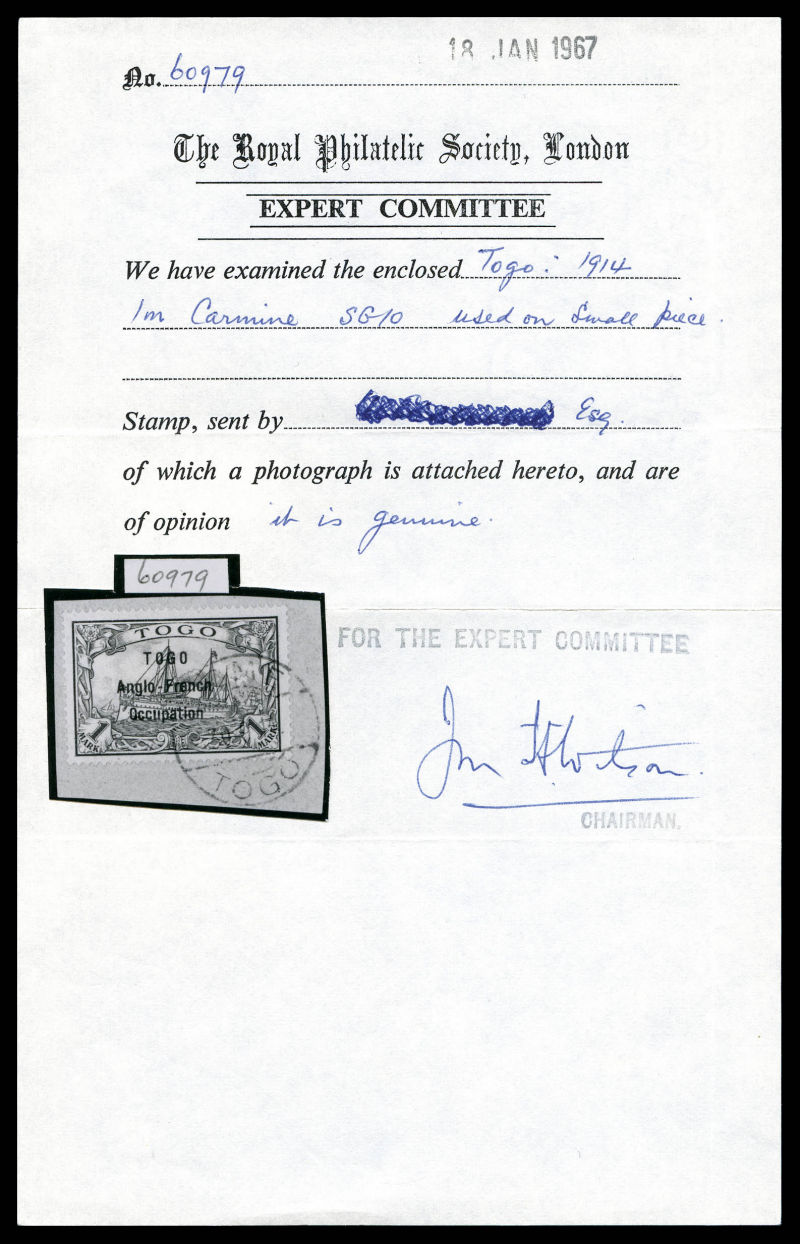 18 JAN 1967
No. 60979
The Royal Philatelic Society, London
EXPERT COMMITTEE
We have examined the enclosed Togo: 1914
1m Carmine SG10 used on small piece.
Stamp, sent by Esq.
of which a photograph is attached hereto, and are
of opinion it is genuine.
60979
TOGO
TOGO
Anglo-French
Occupation
1 MARK 1 MARK
TOGO
FOR THE EXPERT COMMITTEE
CHAIRMAN.